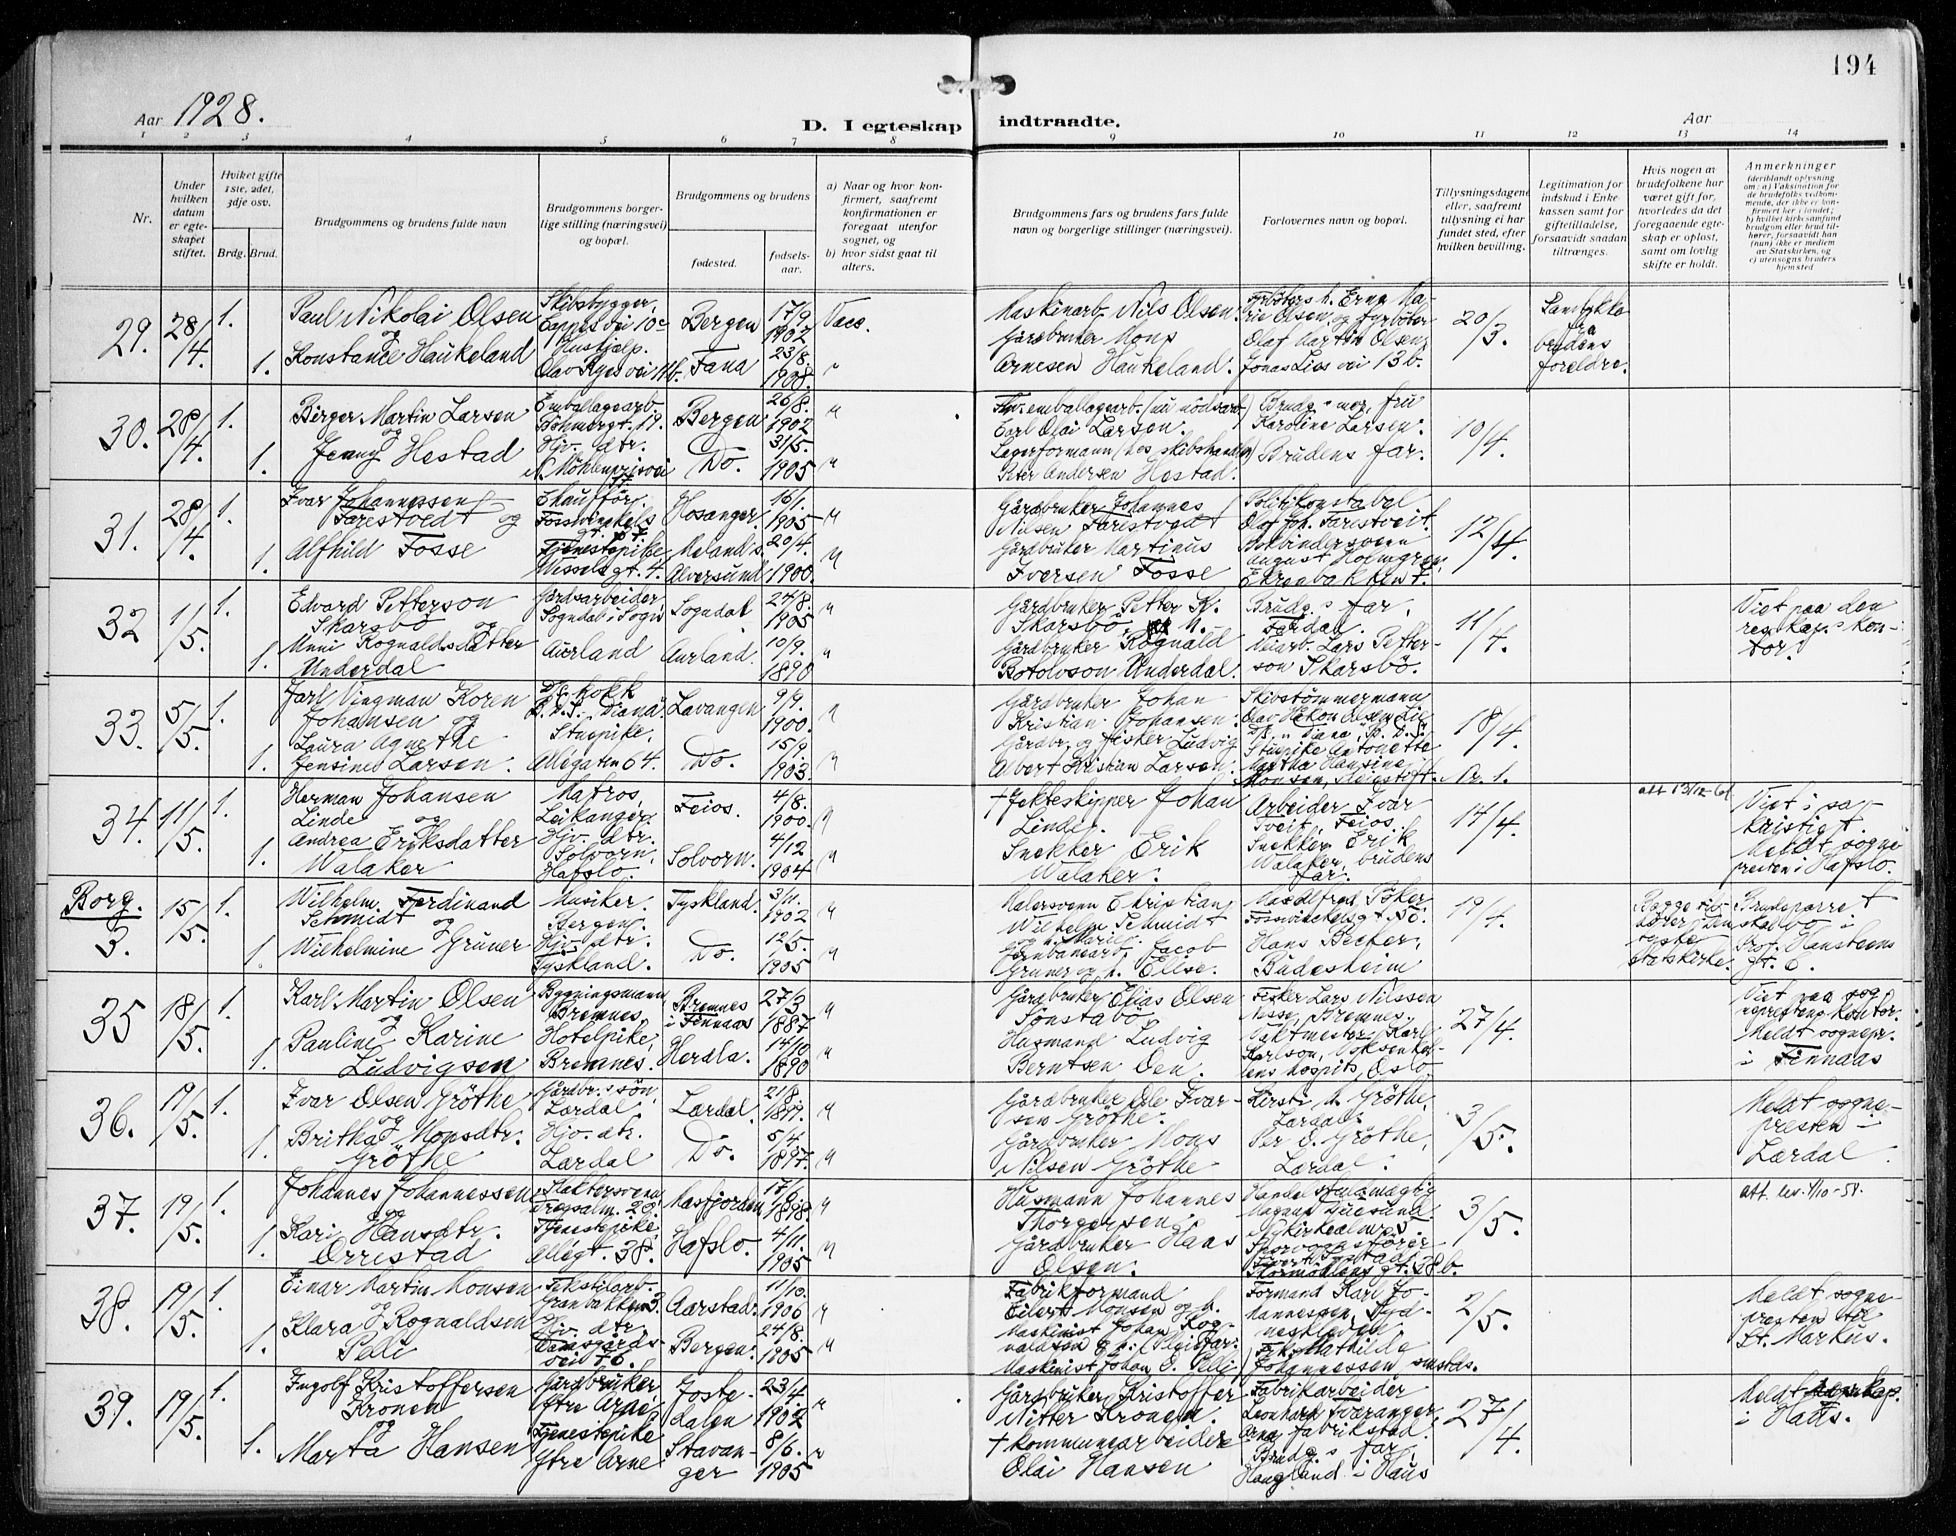 194
Aar 1928.
D. Iegteskap indtraadte.
Aar
1 2 3 4 5 6 7 8 9 10 11 12 13 14
Nr.
Under hvilken datum er egteskapet stiftet.
Hviket gifte 1ste, 2det, 3dje osv.
Brdg. Brud.
Brudgommens og brudens fulde navn
Brudgommens borgerlige stilling (næringsvei) og bopæl.
Brudgommens og brudens
fødested.
fødselsaar.
a) Naar og hvor konfirmert, saafremt konfirmationen er foregaat utenfor sognet, og
b) hvor sidst gaat til alters.
Brudgommens fars og brudens fars fulde navn og borgerlige stillinger (næringsvei).
Forlovernes navn og bopæl.
Tillysningsdagene eller, saafremt tillysning ei har fundet sted, efter hvilken bevilling.
Legitimation for indskud i Enkekassen samt for giftetilladelse, forsaavidt saadan tiltrænges.
Hvis nogen av brudefolkene har været gift før, hvorledes da det foregaaende egteskap er opløst, samt om lovlig skifte er holdt.
Anmerkninger
(deriblandt oplysning om: a) Vaksination for de brudefolks vedkommende, der ikke er konfirmert her i landet; b) hvilket kirkesamfund brudgom eller brud tilhører, forsaavidt han (hun) ikke er medlem av Statskirken, og c) utensogns bruders hjemsted
29. 28/4. 1. 1.
Paul Nikolai Olsen
og
Konstance Haukeland
Skibsbygger,
Cappes vei 10c
Hushjelp.
Olav Kyes vei 11b.
Bergen 17/9. 1902
Fana 23/8. 1908.
Vacs.
Maskinarb. Nils Olsen.
Gårdbruker Mons
Arnesen Haukeland.
Fyrbøters h. Erna Marie Olsen, og fyrbøter
Olaf Martin Olsen,
Jonas Lies vei 13b.
20/3.
Samtykke
fra
brudens
foreldre.
30. 28/4. 1. 1.
Birger Martin Larsen
og
Jenny Hestad
Emballagearb.
Böhmergt. 19.
Hjv. dtr.
N. Möhlenprisvei 17
Bergen 26/8. 1902
Do. 31/5. 1905
Fhv. emballagearb. (nu nödsarb.)
Carl Olai Larsen.
Lagerformann (hos skibshandler)
Peter Andersen Hestad.
Brudg.s mor, fru
Karoline Larsen.
Brudens far.
10/4.
31. 28/4. 1. 1.
Ivar Johannessen
Farestvedt og
Alfhild Fosse
Chauffør,
Fossvinckels
gt. 57
Tjenestepike
Wesselsgt. 4.
Hosanger. 16/1. 1905
Meland s. Alversund 20/4. 1900.
Gårdbruker Johannes
Nilsen Farestvedt
Gårdbruker Martinus
Iversen Fosse
Politikonstabel
Olaf Joh. Farestveit.
Bokbindersvenn
August Holmgren,
Ekrenbakken 7.
12/4.
32 1/5. 1. 1.
Edvard Petterson
Skarsbö og
Unni Rognaldsdatter
Underdal
Gårdsarbeider,
Sogndal i Sogn
Aurland
Sogndal 24/8. 1905
Aurland. 10/9. 1890
Gårdbruker Petter K.
Skarsbö
Gårdbruker Rognald
Botolvson Underdal.
Brudg.s far.
Veiarb. Lars Petterson Skarsbö.
11/4.
Viet paa den
res. kap.s kontor.
33. 5/5. 1. 1.
Jarl Vingman Koren
Johansen og
Laura Agnethe
Jensine Larsen.
D/S. kokk
B.D.S. "Diana"
Stuepike,
Allégaten 64.
Lavangen 9/9. 1900.
Do. 15/9. 1903.
Gårdbruker Johan
Kristian Johansen.
Gårdbr. og fisker Ludvig
Albert Kristian Larsen.
Skibstømmermann
Olav Håkon Olsen Lie
D/S. "Diana", B.D.S.
Stuepike Antonette
Martha Hansine
Monsen,
18/4.
Nr. 1.
34. 11/5. 1. 1.
Herman Johansen
Linde og
Andrea Eriksdatter
Walaker
Matros,
Leikanger.
Hjv. dtr.
Solvorn.
Hafslo.
Feios. 4/8. 1900.
Solvorn. 4/12 1904
+ Jekteskipper Johan
Linde.
Snekker Erik
Walaker.
Arbeider Ivar
Tveit, Feios.
Snekker Erik
Walaker, brudens
far.
14/4.
att. 13/12-61
Viet i sakristiet.
Meldt sognepresten i Hafslo.
Borg.
3. 15/5. 1. 1.
Wilhelm Ferdinand
Schmidt og
Wilhelmine Gruner
Musiker.
Bergen.
Hjv. dtr.
Tyskland.
Tyskland. 3/11. 1902
Do. 12/5. 1905
Malersvenn Christian
Wilhelm Schmidt
og h. Marie.
Jernbanearb. Jacob
Gruner og h. Ellse.
Fossvinckelsgt.
Hans Becker,
Büdesheim
19/4.
Begge tilhører den
tyske
statskirke.
Brudeparret
Prof. Hansteens
gt. 6.
35 18/5. 1. 1.
Karl Martin Olsen
og
Pauline Karine
Ludvigsen
Bygningsmann
Bremnes
Hotelpike,
Bremnes.
Bremnes i Finnaas 27/3 1887
Herdla. 14/10 1890
Gårdbruker Elias Olsen
Sönstabö
Husmand Ludvig
Berntsen Oen.
Fisker Lars Nilssen
Nesse, Bremnes.
Vaktmester Karl
Karlson,
hospits, Oslo.
27/4.
Viet paa sogneprestens kontor.
Meldt sognepr.
i Finnaas
36. 19/5. 1. 1.
Ivar Olsen Gröthe
og
Britha Monsdtr.
Gröthe
Gårdbr.s søn,
Lærdal.
Hjv. dtr.
Lærdal
Lærdal. 21/8.
Do. 5/4. 1897.
Gårdbruker Ole Ivarsen Gröthe.
Gårdbruker Mons
Nilsen Gröthe
Kirsti M. Gröthe,
Lærdal.
Per O. Gröthe,
Lærdal.
3/5.
Meldt sognepresten i
Lærdal.
37. 19/5. 1. 1.
Johannes Johannessen
og
Kari Hansdtr.
Orrestad
Slaktersvenn,
Tjenestepike,
Allegt. 38.
Masfjorden 17/9. 1898.
Hafslo. 4/11. 1905
Husmann Johannes
Thorgersen.
Gårdbruker Haas
Olsen.
Handelsfuldmægtig
Magnus Duesund,
Nykirkealm. 5.
Sporvognsfører
Thormöhlens gt. 38b.
3/5.
att. lev. 1/10-51.
38. 19/5. 1. 1.
Einar Martin Monsen
og
Klara Rognaldsen
Pelli
Tekstilarb.
Granbakken 3.
Hjv. dtr.
Damsgårdsvei 76.
Aarstad. 11/10. 1906
Bergen. 24/8. 1905
Fabrikformand
Eilert Monsen og h.
Maskinist Johan Rognvaldsen g.h. (Pleiefar:
Maskinist Johan O. Pelli)
Formand Karl Johannessen, Nydneskleiven
Frk. Mathilde
Johannessen smstds.
2/5.
Meldt sognepresten til
St. Markus.
39. 19/5. 1. 1.
Ingolf Kristoffersen
Kronen
og
Marta Hansen
Gårdbruker,
Ytre Arne
Tjenestepike
Ytre Arne
Jostedalen 23/4. 1902
Stavanger 8/6. 1905
Gårdbruker Kristoffer
Nitter Kronen.
+ Kommunearbeider
Olai Hansen
Fabrikarbeider
Leonhard Tveranger,
Arne fabrikstad.
Brudg.s far,
Haugland i Haus
27/4.
Meldt
i Haus.